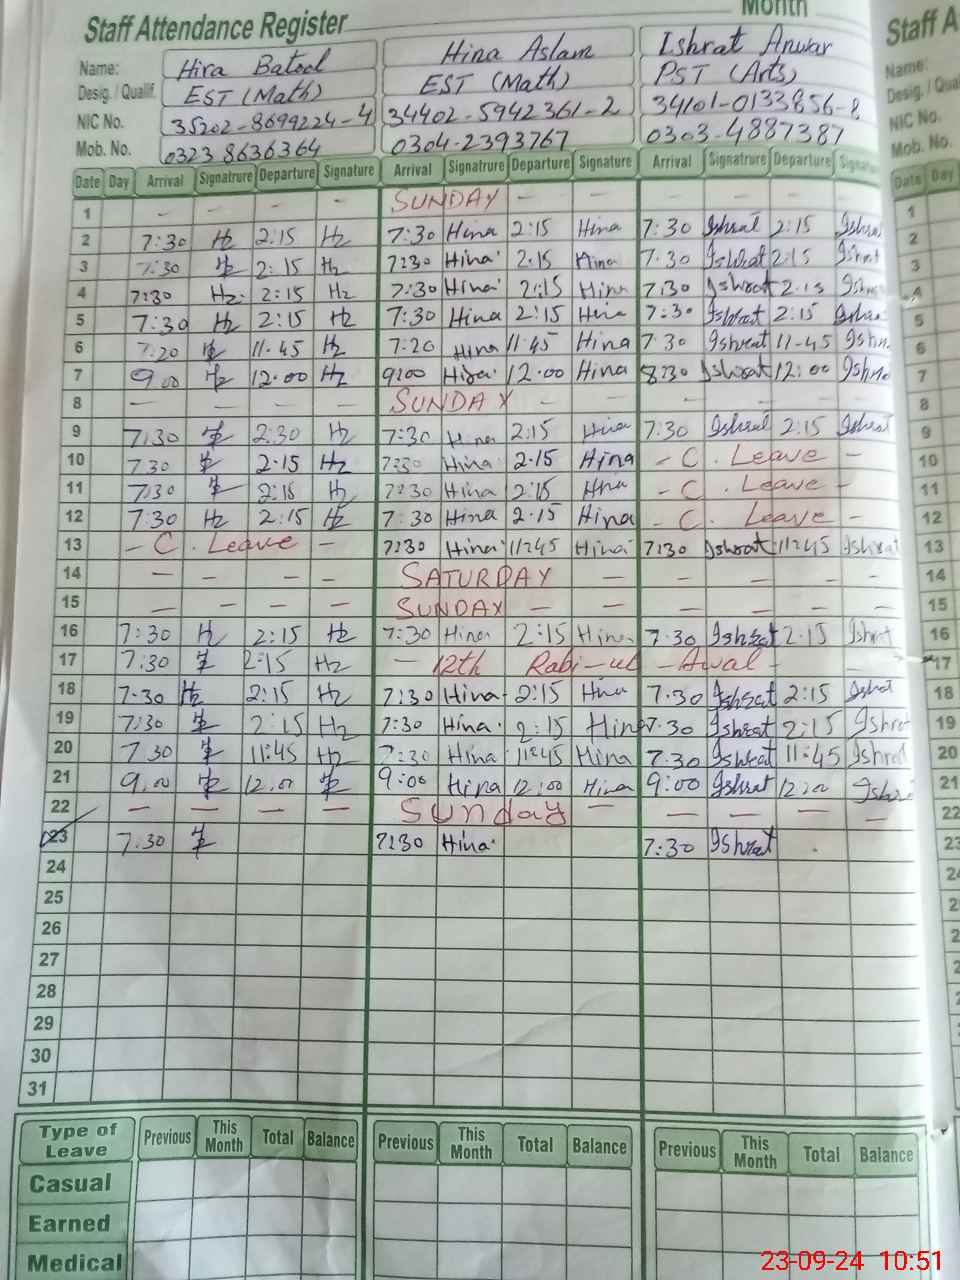 Month
Staff Attendance Register
Staff A
Name: Hira Batool Hina Aslam Ishrat Anwar Name:
Desig. / Qualif. EST (Math) EST (Math) PST (Arts) Desig. / Qua
NIC No. 35202-8699224-4 34402-5942361-2 34101-0133856-8 NIC No.
Mob. No. 0323 8636364 0304-2393767 0303-4887387 Mob. No.
Date Day Arrival Signatrure Departure Signature Arrival Signatrure Departure Signature Arrival Signatrure Departure Signatu Date Day
1 - - - - SUNDAY - - - - - - 1
2 7:30 Hz 2:15 Hz 7:30 Hina 2:15 Hina 7:30 Ishrat 2:15 Ishra 2
3 7:30 2:15 Hz 7:30 Hina 2:15 Hina 7.30 Ishrat 2:15 Ishrat 3
4 7:30 Hz 2:15 Hz 7:30 Hina 2:15 Hina 7:30 Ishrat 2:15 Ishra 4
5 7:30 Hz 2:15 Hz 7:30 Hina 2:15 Hina 7:30 Ishrat 2:15 Ishra 5
6 7:20 11.45 Hz 7:20 Hina 11:45 Hina 7 30 Ishrat 11-45 Ishr 6
7 9.00 Hz 12.00 Hz 9:00 Hina 12.00 Hina 8:30 Ishrat 12:00 Ishra 7
8 - - - - SUNDAY - - - - - - 8
9 7:30 2:30 Hz 7:30 Hina 2:15 Hina 7:30 Ishrat 2:15 Ishrat 9
10 7.30 2.15 Hz 7:30 Hina 2.15 Hina - C. Leave - 10
11 7:30 2:15 Hz 7:30 Hina 2:15 Hina - C. Leave - 11
12 7:30 Hz 2:15 Hz 7:30 Hina 2.15 Hina - C. Leave - 12
13 - C. Leave - 7:30 Hina 11:45 Hina 7:30 Ishrat 11:45 Ishrat 13
14 - - - - SATURDAY - - - - - 14
15 - - - - SUNDAY - - - - - - 15
16 7:30 Hz 2:15 Hz 7:30 Hina 2:15 Hina 7.30 Ishrat 2.15 Ishrat 16
17 7:30 2:15 Hz - 12th Rabi-ul-Awal - 17
18 7.30 Hz 2:15 Hz 7:30 Hina 2:15 Hina 7.30 Ishrat 2:15 Ishrat 18
19 7:30 2:15 Hz 7:30 Hina 2:15 Hina 7.30 Ishrat 2:15 Ishrat 19
20 7.30 11:45 Hz 7:30 Hina 11:45 Hina 7.30 Ishrat 11:45 Ishrat 20
21 9.00 12.00 9:00 Hina 12:00 Hina 9:00 Ishrat 12:00 Ishra 21
22 - - - - Sunday - - - - - 22
23 7.30 7:30 Hina 7:30 Ishrat 23
24 24
25 2
26 2
27 2
28 2
29
30
31
Type of Leave Previous This Month Total Balance Previous This Month Total Balance Previous This Month Total Balance
Casual
Earned
Medical
23-09-24 10:51